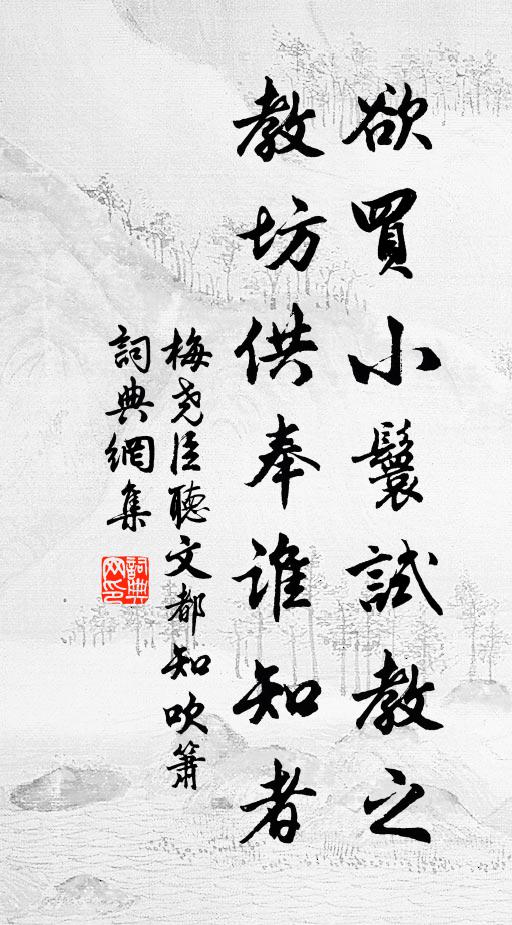 欲買小鬟試教之
教坊供奉誰知者
梅堯臣聽文都知吹簫
詞典網集
詞典網印